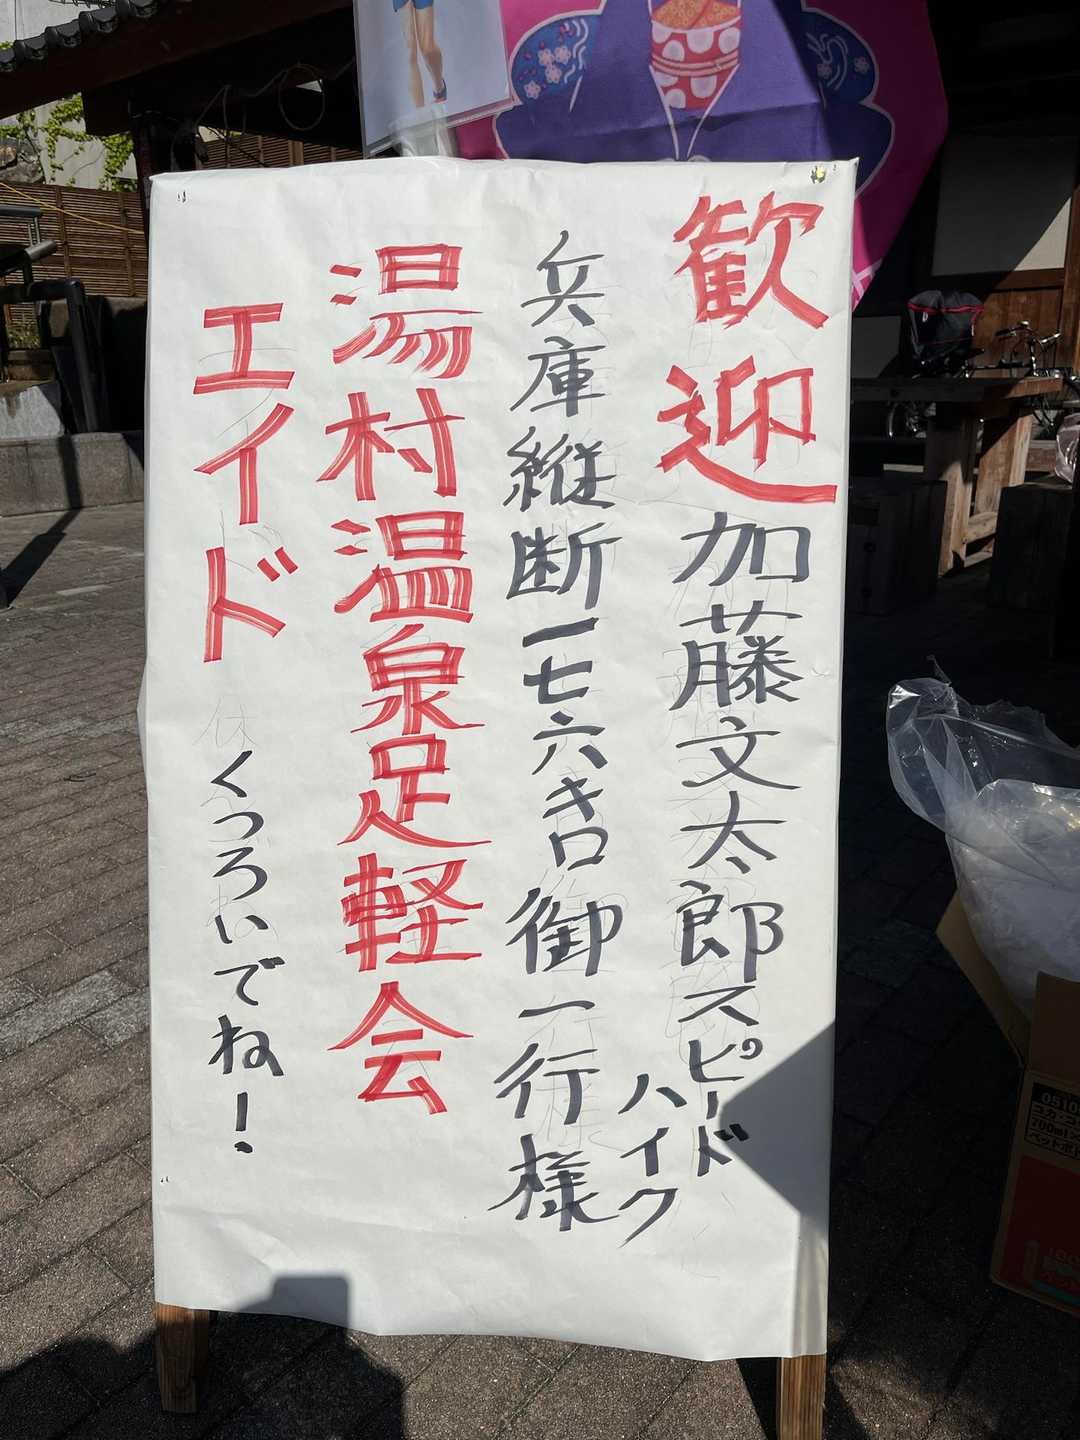 歓迎 加藤文太郎スピードハイク
兵庫縦断一七六キロ御一行様
湯村温泉足軽会
エイド くつろいでね!
0510
コカ・コ
700ml×
ペットボト